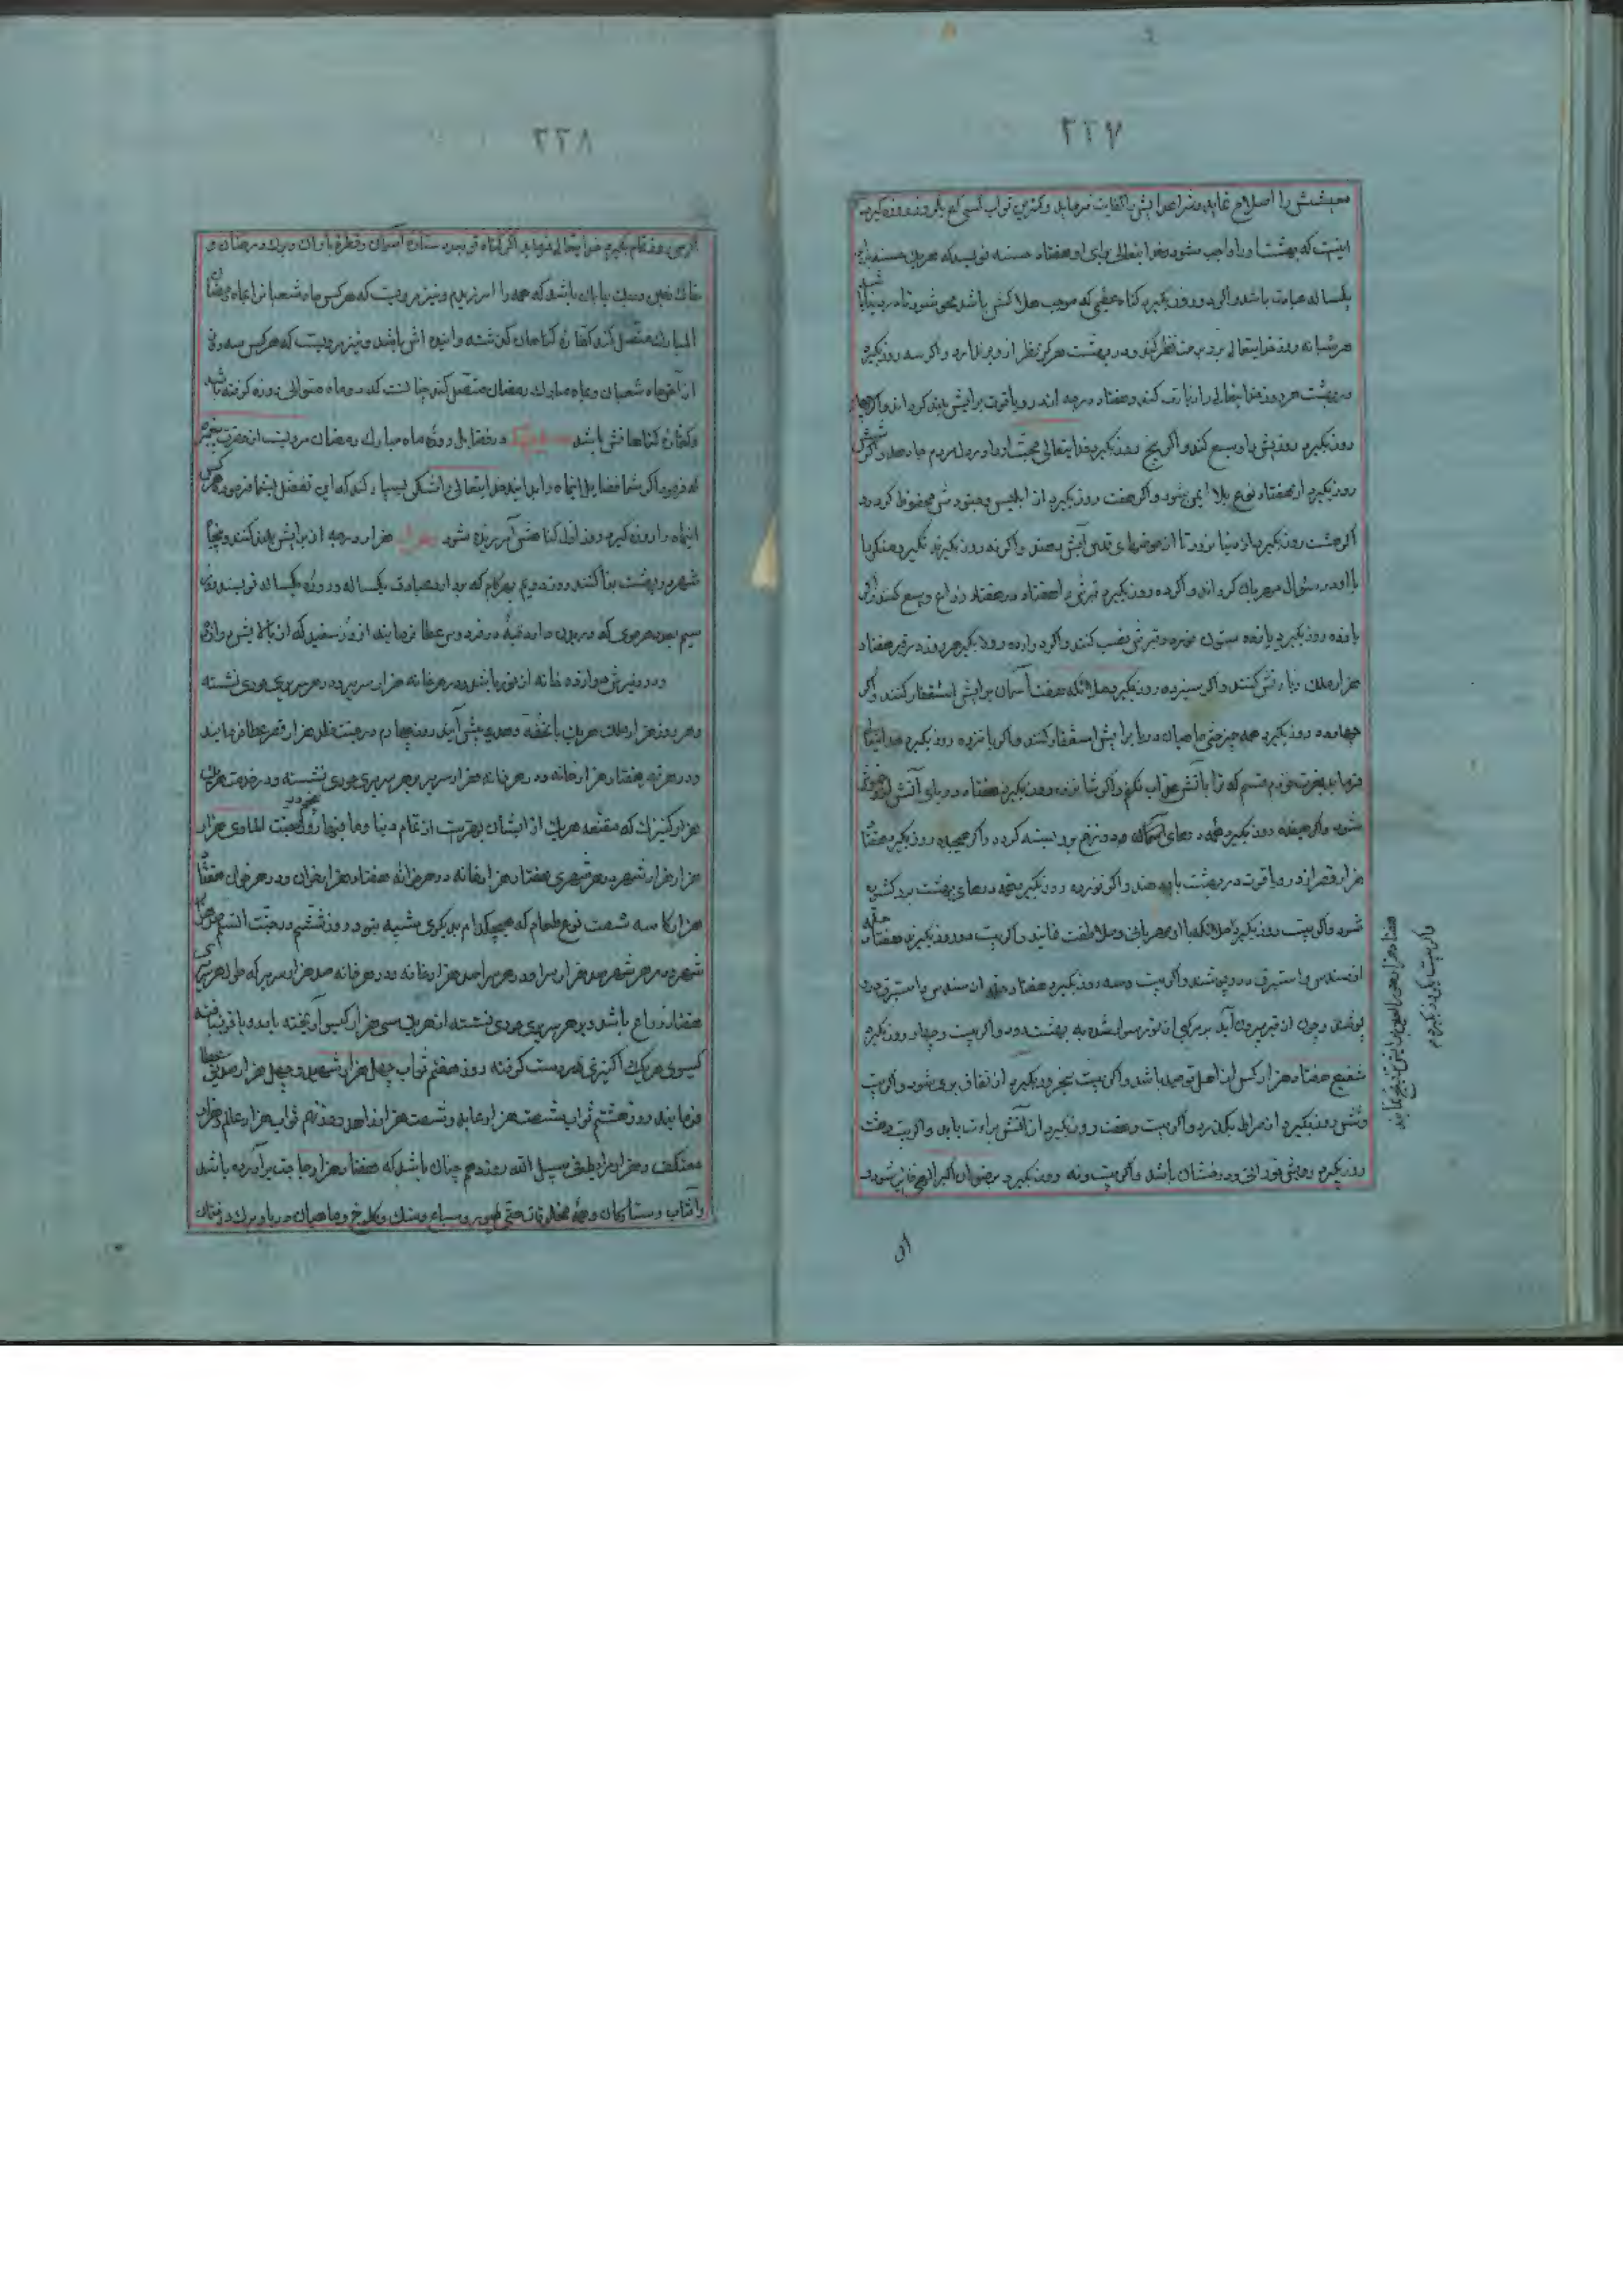 ۲۲۷
معیشتش را اصلاح نماید و شر اعدایش را کفایت فرماید و کمترین ثواب کسی که یکروز روزه گیرد
اینست که بهشت او را واجب میشود و خدایتعالی برای او هفتاد حسنه نویسد که هر یک حسنه
یکساله عبادت باشد و اگر دو روز بگیرد گناه عظیمی که موجب هلاکش باشد محو شود و تا در دنیا باشد
هر شبانه روز خدایتعالی برو برحمت نظر کند و در بهشت هرگز نظر ازو برندارد و اگر سه روز بگیرد
در بهشت هر روز خدایتعالی را زیارت کند و هفتاد درجه از در و یاقوت برایش بلند گرداند و اگر چهار
روز بگیرد روزیش را وسیع کند و اگر پنج روز بگیرد خدایتعالی محبت او را در دل مردم جا دهد و اگر شش
روز بگیرد از هفتاد نوع بلا ایمن شود و اگر هفت روز بگیرد از ابلیس و جنودش محفوظ گردد
اگر هشت روز بگیرد از دنیا نرود تا از حوضهای قدس آبش بدهند و اگر نه روز بگیرد نکیر و منکر با
با او در سؤال مهربان گردانند و اگر ده روز بگیرد قبرش را هفتاد در هفتاد ذراع وسیع کنند و اگر
یازده روز بگیرد یازده ستون در قبرش نصب کنند و اگر دوازده روز بگیرد هر روزه در قبر هفتاد
هزار ملک زیارتش کنند و اگر سیزده روز بگیرد ملائکه هفت آسمان برایش استغفار کنند و اگر
چهارده روز بگیرد همه چیز حتی ماهیان دریا برایش استغفار کنند و اگر پانزده روز بگیرد خدایتعالی
فرماید بعزت خودم قسم که ترا بآتش عذاب نکنم و اگر شانزده روز بگیرد هفتاد دریای آتش ازو خاموش
شود و اگر هفده روز بگیرد همه درهای دوزخ برو بسته گردد و اگر هیجده روز بگیرد هفتاد
هزار قصر از در و یاقوت در بهشت بدهند و اگر نوزده روز بگیرد همه درهای بهشت برو گشوده
شود و اگر بیست روز بگیرد ملائکه با او مهربانی و ملاطفت نمایند و اگر بیست و دو روز بگیرد هفتاد حله
از سندس و استبرق درو پوشند و اگر بیست و سه روز بگیرد هفتاد حله از سندس و استبرق درو
پوشند و چون از قبر بیرون آید بر مرکبی از نور سوار شده به بهشت رود و اگر بیست و چهار روز بگیرد
شفیع هفتاد هزار کس از اهل توحید باشد و اگر بیست و پنجروز بگیرد از نفاق بری شود و اگر بیست
و شش روز بگیرد از صراط بگذرد و اگر بیست و هفت روز بگیرد از آتش براءت یابد و اگر بیست و هشت
روز بگیرد رویش نورانی و درخشان باشد و اگر بیست و نه روز بگیرد برضوان اکبر الهی فایز شود و
اگر
و اگر بیست و یکروز بگیرد
هفتاد هزار حورالعین برایش تزویج نمایند
۲۲۸
اگر سی روز تمام بگیرد خدایتعالی فرماید اگر گناه تو بعدد ستارۀ آسمان و قطرۀ باران و برک درختان و
خاک زمین و ریک بیابان باشد که همه را آمرزیدم و نیز مرویست که هر کس ماه شعبانرا بماه رمضان
المبارک متصل کند کفارۀ گناهان گذشته و آینده اش باشد و نیز مرویست که هر کس سه روز
از آخر ماه شعبان و بماه مبارک رمضان متصل کند چنانست که دو ماه متوالی روزه گرفته باشد
و کفارۀ گناهانش باشد در فضایل روزۀ ماه مبارک رمضان مرویست از حضرت پیغمبر
که فرمود اگر شما فضایل اینماه را بدانید خدایتعالی را شکر بسیار کنید که این تفضل بشما فرمود هر کس
اینماه را روزه گیرد روز اول گناهش آمرزیده شود هزار درجه از برایش بلند کنند و پنجاه
شهر در بهشت بنا کنند روز دویم بهر گام که بردارد عبادت یکساله و روزۀ یکساله نویسند روز
سیم بعدد هر موی که در بدن دارد قبۀ در فردوس عطا فرمایند از در سفید که از بالایش دوازده
و در زیرش دوازده خانه از نور باشد و در هر خانه هزار سریر و در هر سریری حوری نشسته
و هر روز هزار ملک هر یک با تحفه و هدیه پیش آیند روز چهارم در جنت خلد هزار قصر عطا فرمایند
و در هر قصر هفتاد هزار خانه و در هر خانه هزار سریر و بر هر سریری حوری نشسته و در خدمت هر یک
هزار کنیزک که مقنعه هر یک از ایشان بهتر است از تمام دنیا و ما فیها روز پنجم در جنت الماوی هزار
هزار هزار شهر و در هر شهری هفتاد هزار خانه و در هر خانه هفتاد هزار خوان و در هر خوان هفتاد
هزار کاسه شصت نوع طعام که هیچکدام بدیگری مشبیه نبود روز ششم در جنت السلام صد هزار
شهر و در هر شهر صد هزار سرا و در هر سرا صد هزار خانه و در هر خانه صد هزار سریر که طول هر سریری
هفتاد ذراع باشد و بر هر سریری حوری نشسته از هر یک سی هزار گیسو آویخته بدر و یاقوت بافته
گیسوی هر یک را کنیزی در دست گرفته روز هفتم ثواب چهل هزار شهید و چهل هزار صدیق عطا
فرمایند روز هشتم ثواب شصت هزار عابد و شصت هزار زاهد و روز نهم ثواب هزار عالم و هزار
معتکف و هزار مرابط فی سبیل الله روز دهم چنان باشد که هفتاد هزار حاجت برآورده باشد
و آفتاب و ستارگان و همۀ مخلوقات حتی طیور و سباع و سنک و کلوخ و ماهیان دریا و برک درختان